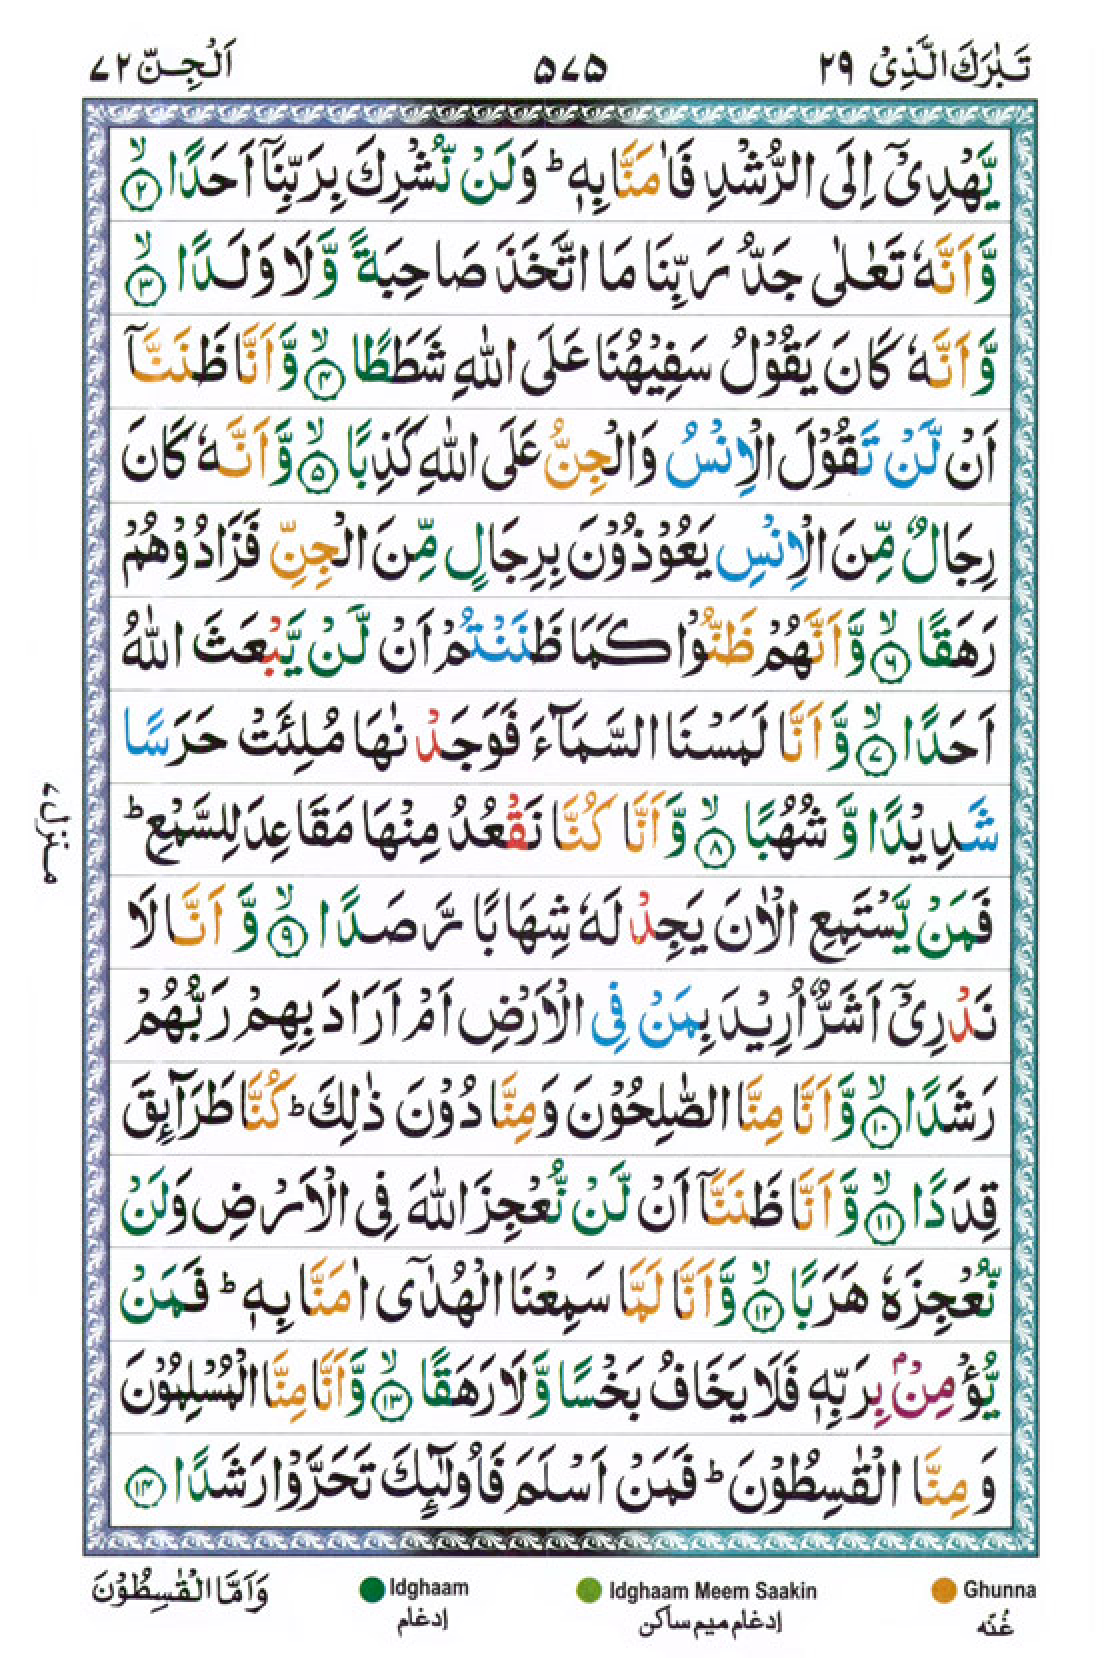 تَبٰرَكَ الَّذِیْ ٢٩
٥٧٥
اَلْجِنّ ٧٢
یَّهْدِیْۤ اِلَی الرُّشْدِ فَاٰمَنَّا بِهٖ ؕ وَلَنْ نُّشْرِكَ بِرَبِّنَاۤ اَحَدًا ۙ﴿٢﴾
وَّاَنَّهٗ تَعٰلٰی جَدُّ رَبِّنَا مَا اتَّخَذَ صَاحِبَةً وَّلَا وَلَدًا ۙ﴿٣﴾
وَّاَنَّهٗ كَانَ یَقُوْلُ سَفِیْهُنَا عَلَی اللّٰهِ شَطَطًا ۙ﴿٤﴾ وَّاَنَّا ظَنَنَّاۤ
اَنْ لَّنْ تَقُوْلَ الْاِنْسُ وَالْجِنُّ عَلَی اللّٰهِ كَذِبًا ۙ﴿٥﴾ وَّاَنَّهٗ كَانَ
رِجَالٌ مِّنَ الْاِنْسِ یَعُوْذُوْنَ بِرِجَالٍ مِّنَ الْجِنِّ فَزَادُوْهُمْ
رَهَقًا ۙ﴿٦﴾ وَّاَنَّهُمْ ظَنُّوْا كَمَا ظَنَنْتُمْ اَنْ لَّنْ یَّبْعَثَ اللّٰهُ
اَحَدًا ۙ﴿٧﴾ وَّاَنَّا لَمَسْنَا السَّمَآءَ فَوَجَدْنٰهَا مُلِئَتْ حَرَسًا
شَدِیْدًا وَّشُهُبًا ۙ﴿٨﴾ وَّاَنَّا كُنَّا نَقْعُدُ مِنْهَا مَقَاعِدَ لِلسَّمْعِ ؕ
فَمَنْ یَّسْتَمِعِ الْاٰنَ یَجِدْ لَهٗ شِهَابًا رَّصَدًا ۙ﴿٩﴾ وَّاَنَّا لَا
نَدْرِیْۤ اَشَرٌّ اُرِیْدَ بِمَنْ فِی الْاَرْضِ اَمْ اَرَادَ بِهِمْ رَبُّهُمْ
رَشَدًا ۙ﴿١٠﴾ وَّاَنَّا مِنَّا الصّٰلِحُوْنَ وَمِنَّا دُوْنَ ذٰلِكَ ؕ كُنَّا طَرَآئِقَ
قِدَدًا ۙ﴿١١﴾ وَّاَنَّا ظَنَنَّاۤ اَنْ لَّنْ نُّعْجِزَ اللّٰهَ فِی الْاَرْضِ وَلَنْ
نُّعْجِزَهٗ هَرَبًا ۙ﴿١٢﴾ وَّاَنَّا لَمَّا سَمِعْنَا الْهُدٰۤی اٰمَنَّا بِهٖ ؕ فَمَنْ
یُّؤْمِنْۢ بِرَبِّهٖ فَلَا یَخَافُ بَخْسًا وَّلَا رَهَقًا ۙ﴿١٣﴾ وَّاَنَّا مِنَّا الْمُسْلِمُوْنَ
وَمِنَّا الْقٰسِطُوْنَ ؕ فَمَنْ اَسْلَمَ فَاُولٰٓئِكَ تَحَرَّوْا رَشَدًا ﴿١٤﴾
منزل ٧
وَاَمَّا الْقٰسِطُوْنَ
Idghaam
إدغام
Idghaam Meem Saakin
إدغام میم ساکن
Ghunna
غُنّه